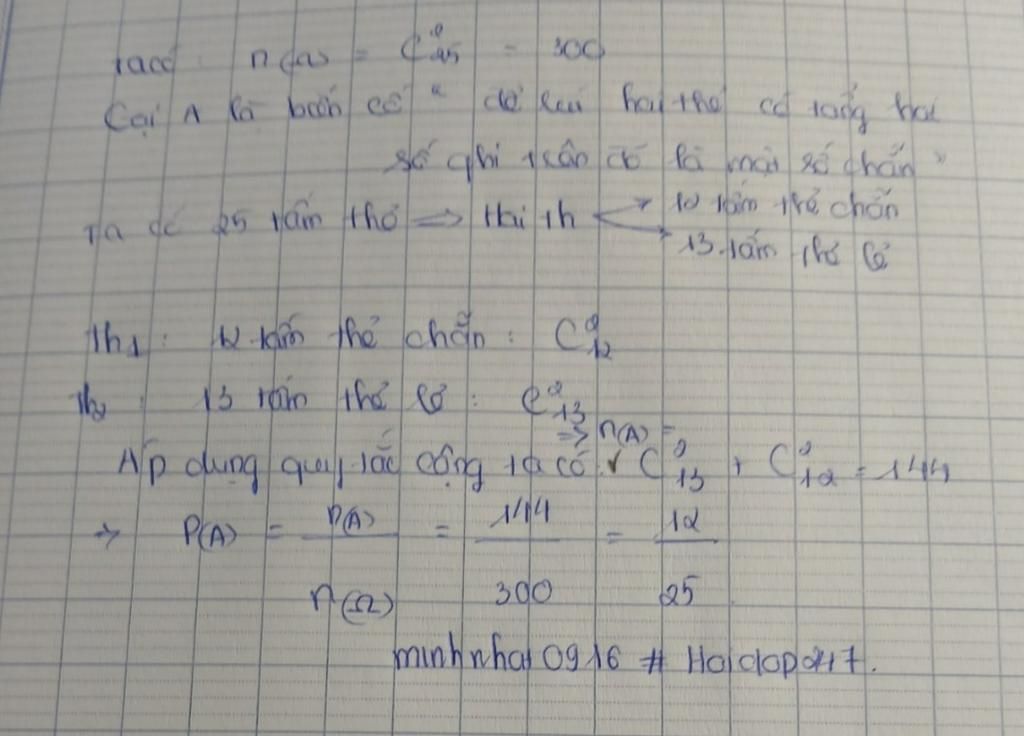 Ta có : n(Ω) = C²₂₅ = 300
Gọi A là biến cố " để rút hai thẻ có tổng hai
số ghi trên đó là một số chẵn "
Ta có 25 tấm thẻ => Hai th 12 tấm thẻ chẵn
13 tấm thẻ lẻ
Th₁ : 12 tấm thẻ chẵn : C²₁₂
Th₂ : 13 tấm thẻ lẻ : C²₁₃
=> n(A) =
Áp dụng quy tắc cộng ta có C²₁₃ + C²₁₂ = 144
-> P(A) = n(A) / n(Ω) = 144 / 300 = 12 / 25
minhnhat0916 # Hoidap247.